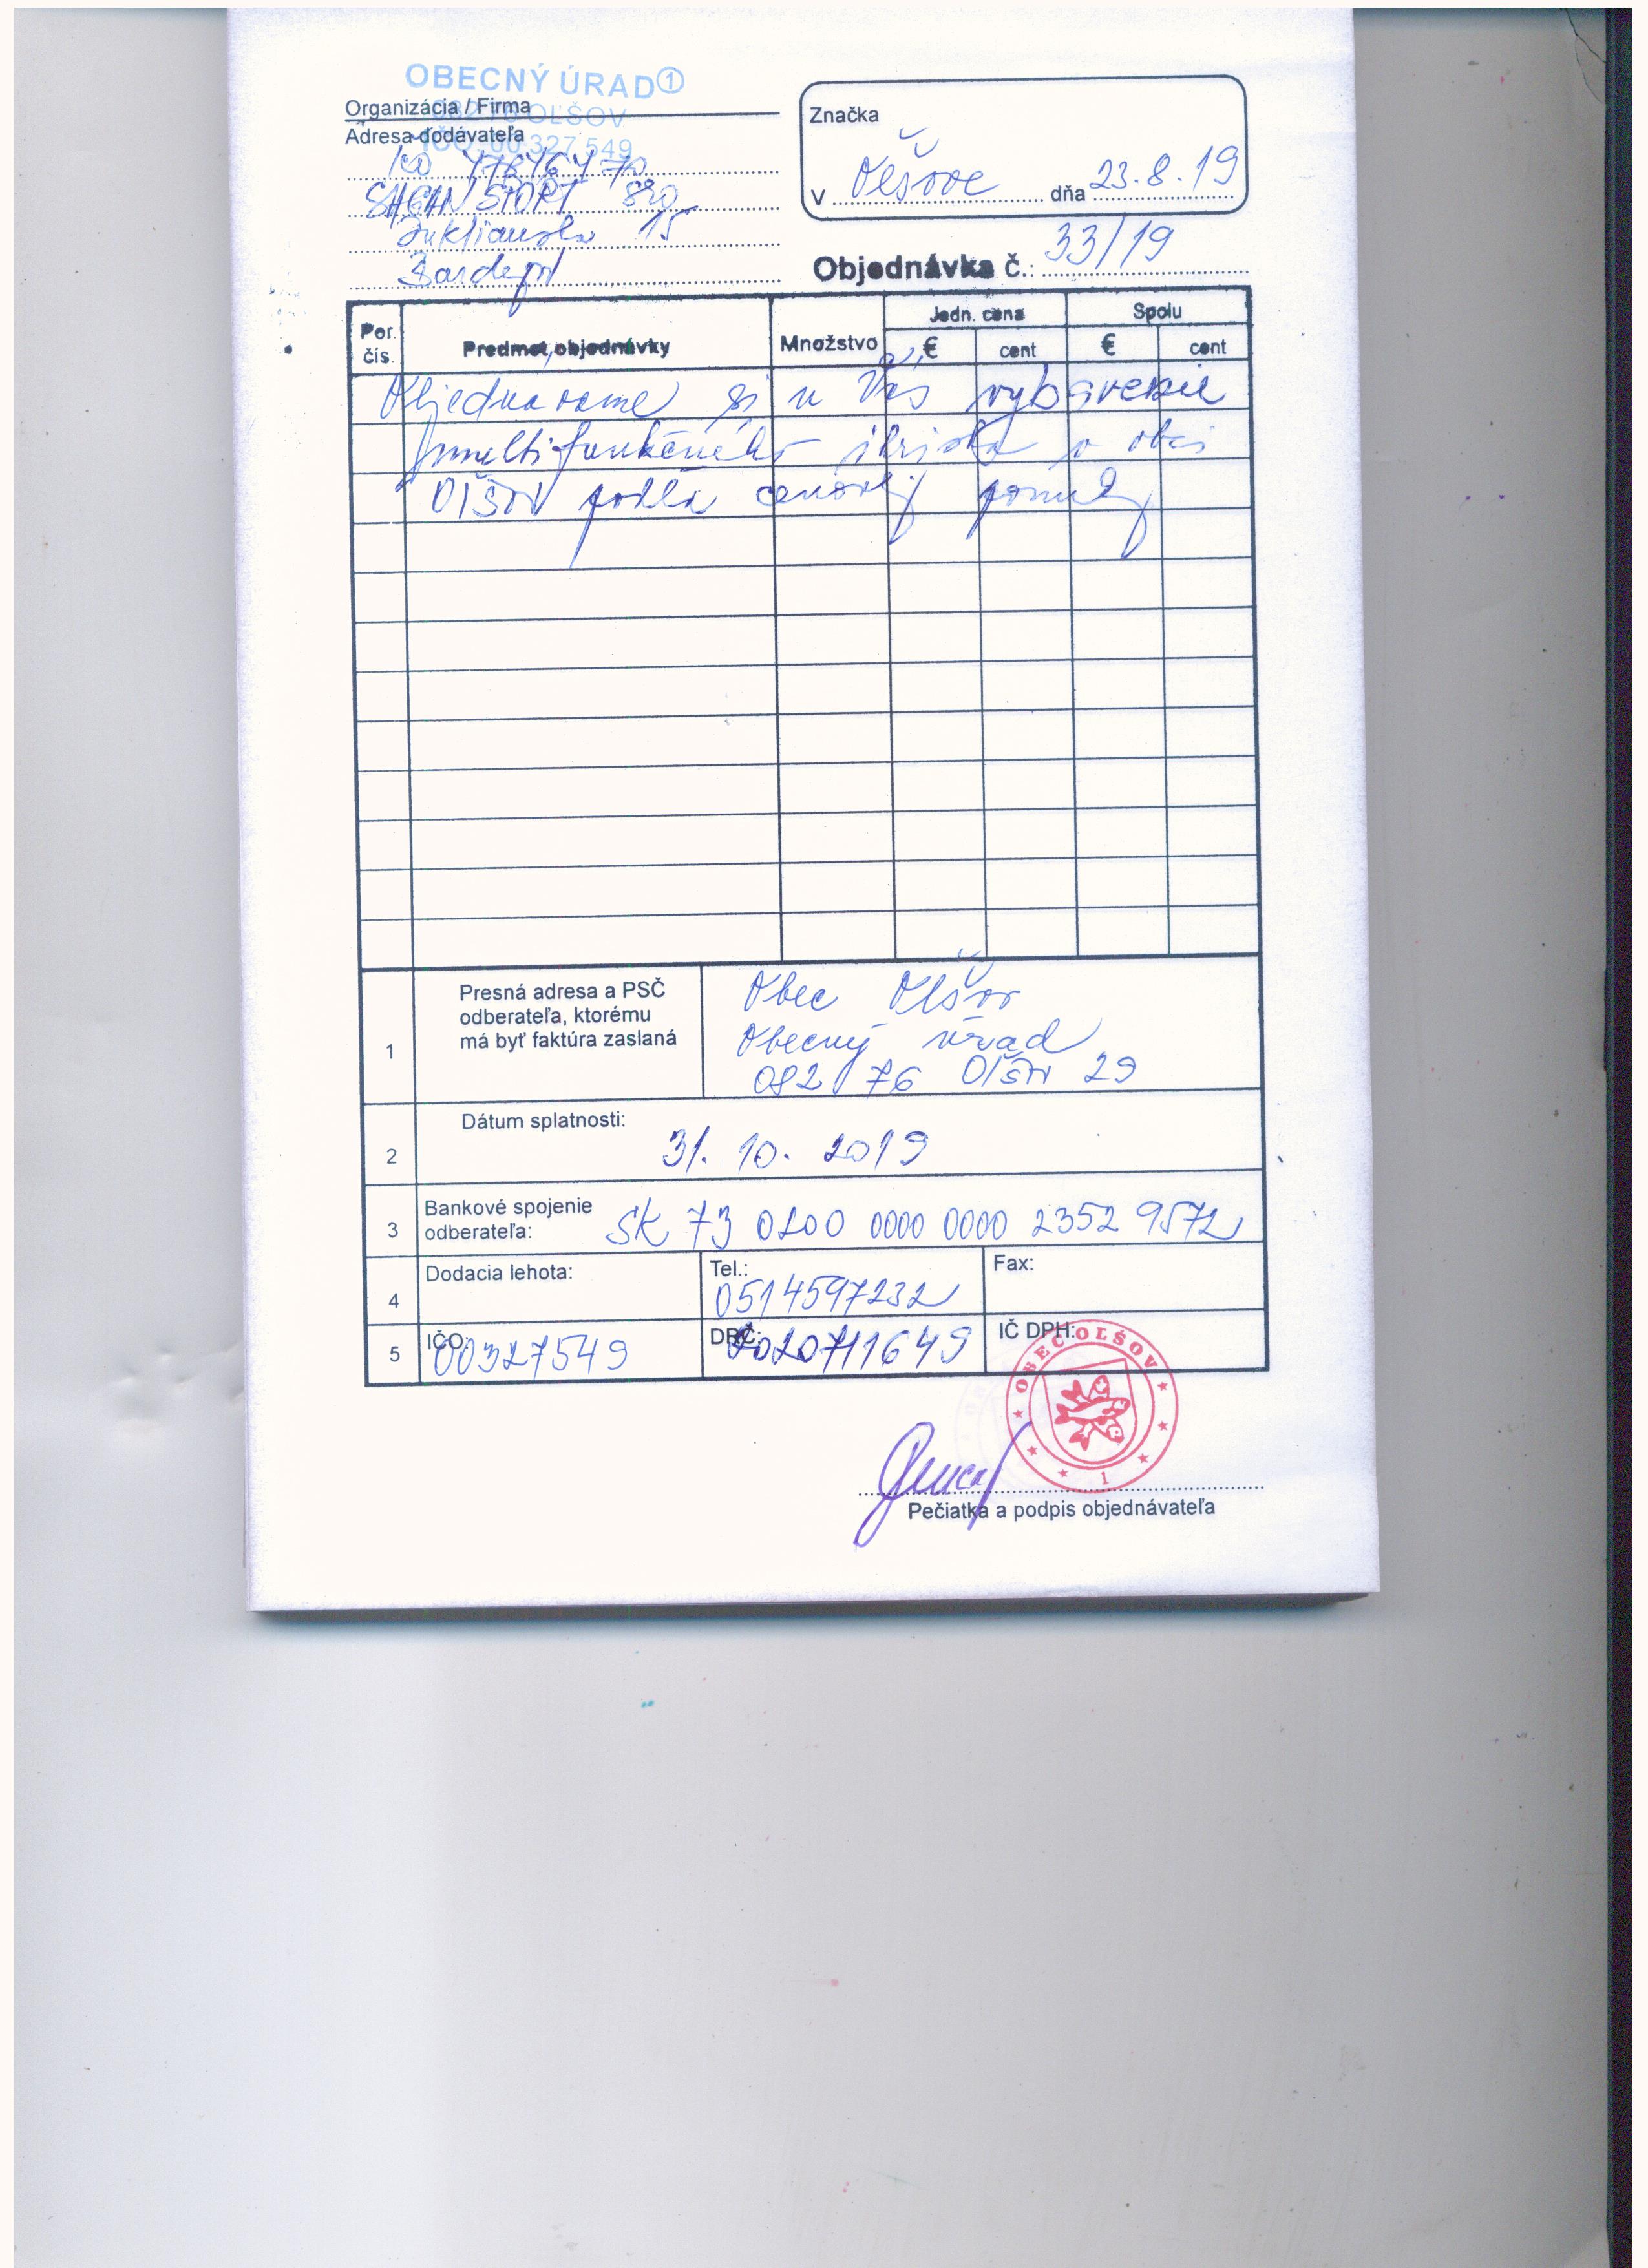 OBECNÝ ÚRAD ①
Organizácia / Firma
082 76 OĽŠOV
Adresa dodávateľa
IČO: 00 327 549
IČO
SAGAN SPORT SRO
Duklianska 15
Bardejov
Značka
V Oľšove dňa 23.8.19
Objednávka č.: 33/19
Por. čís. Predmet objednávky Množstvo Jedn. cena Spolu
€ cent € cent
Objednávame si u Vás vybavenie
multifunkčného ihriska v obci
Olšov podľa cenovej ponuky
1 Presná adresa a PSČ
odberateľa, ktorému
má byť faktúra zaslaná
Obec Olšov
Obecný úrad
082 76 Olšov 29
2 Dátum splatnosti:
31. 10. 2019
3 Bankové spojenie
odberateľa: SK 73 0200 0000 0000 2352 9572
4 Dodacia lehota: Tel.: Fax:
0514597232
5 IČO: 00327549 DRČ: 2020711649 IČ DPH:
OBEC OĽŠOV
1
Pečiatka a podpis objednávateľa